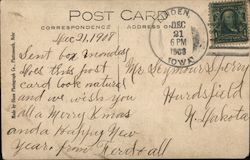 POST CARD
CORRESPONDENCE
ADDRESS
DEC
21
6 PM
1908
IOWA
Dec 21, 1908
Sent box monday
Does this post
card look natural
and we wish you
all a Merry Xmas
and a Happy New
Year. from Ferd + all
Mr Seymour Sperry
Hurdsfield
N. Dakota